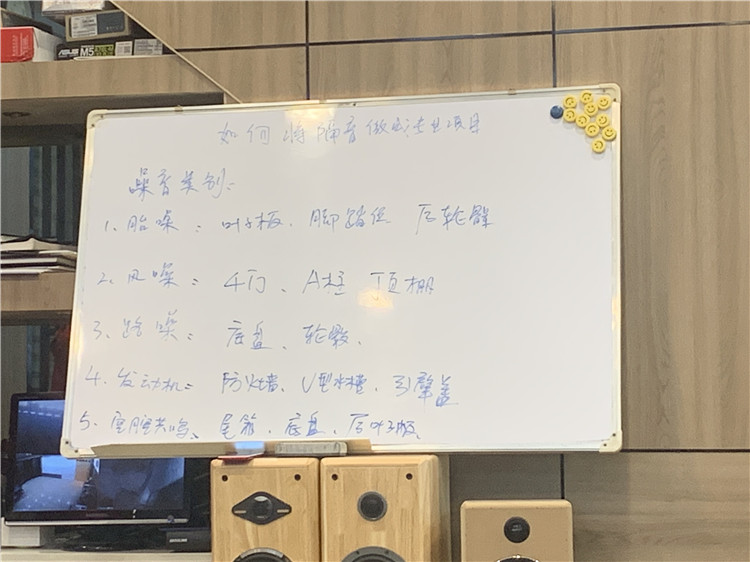 如何将隔音做成专业项目
噪音类别:
1、胎噪: 叶子板、脚踏位 后轮臂
2、风噪: 4门、A柱 顶棚
3、路噪: 底盘、轮毂、
4、发动机: 防火墙、U型水槽、引擎盖
5、空腔共鸣、尾箱、底盘、后叶子板、
ASUS M5